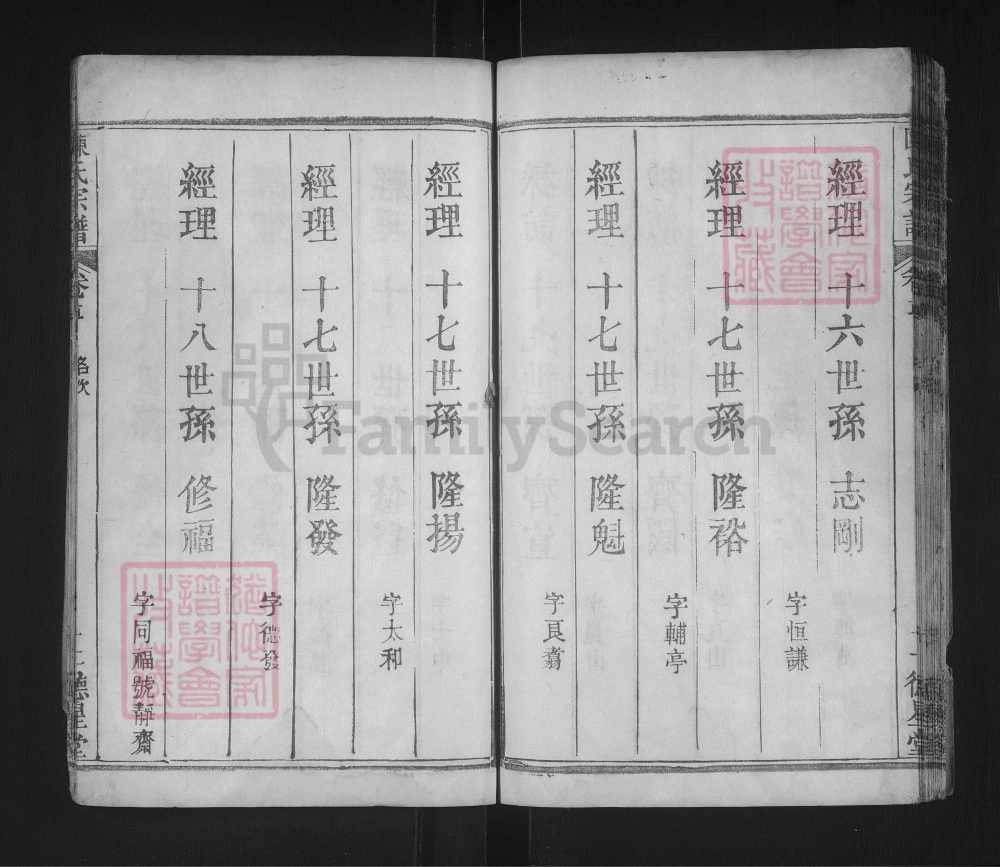 經理 十六世孫 志剛 字恒謙
經理 十七世孫 隆裕 字輔亭
經理 十七世孫 隆魁 字良翥
經理 十七世孫 隆揚 字太和
經理 十七世孫 隆發 字德發
經理 十八世孫 修福 字同福號靜齋
陳氏宗譜 卷首 德星堂
FamilySearch
譜學會
譜學會